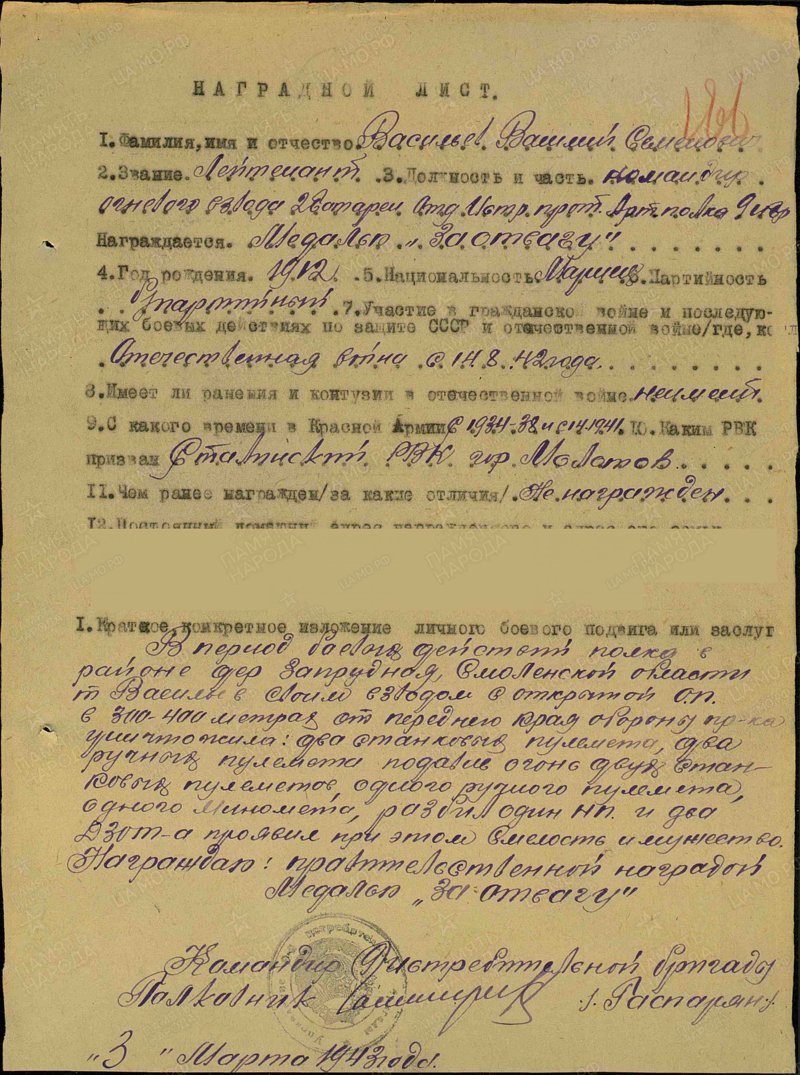 186
НАГРАДНОЙ ЛИСТ.
1. Фамилия, имя и отчество. Васильев Василий Семенович
2. Звание. Лейтенант. 3. Должность и часть. командир
огневого взвода 2 батареи Отд. Истр. прот. Арт полка 9
Награждается. Медалью „За отвагу"
4. Год рождения. 1912. 5. Национальность Мариец 6. Партийность
б/партийный 7. Участие в гражданской войне и последую-
щих боевых действиях по защите СССР и отечественной войне/где, ког
Отечественная война с 14.8.42 года.
8. Имеет ли ранения и контузии в отечественной войне. не имеет.
9. С какого времени в Красной Армии с 1934-38 и с 1941. 10. Каким РВК
призван Сталинский РВК гор Молотов
11. Чем ранее награжден/за какие отличия/. Не награжден
12. Постоянный домашний адрес награжденного и адрес его семьи
1. Краткое конкретное изложение личного боевого подвига или заслуг
В период боевых действий полка в
районе дер Запрудная, Смоленской области
т Васильев своим взводом с открытой О.П.
в 300-400 метрах от переднего края обороны пр-ка
уничтожила: два станковых пулемета, два
ручных пулемета подавил огонь двух Стан-
ковых пулеметов, одного ручного пулемета,
одного Миномета, разбил один НП. и два
ДЗОТ-а проявил при этом Смелость и мужество.
Награждаю: правительственной наградой
Медалью „За отвагу"
Командир Истребительной бригады
Полковник /. Гаспарян./
„3 " Марта 1943 года.
ПАМЯТЬ НАРОДА
ЦАМО.РФ